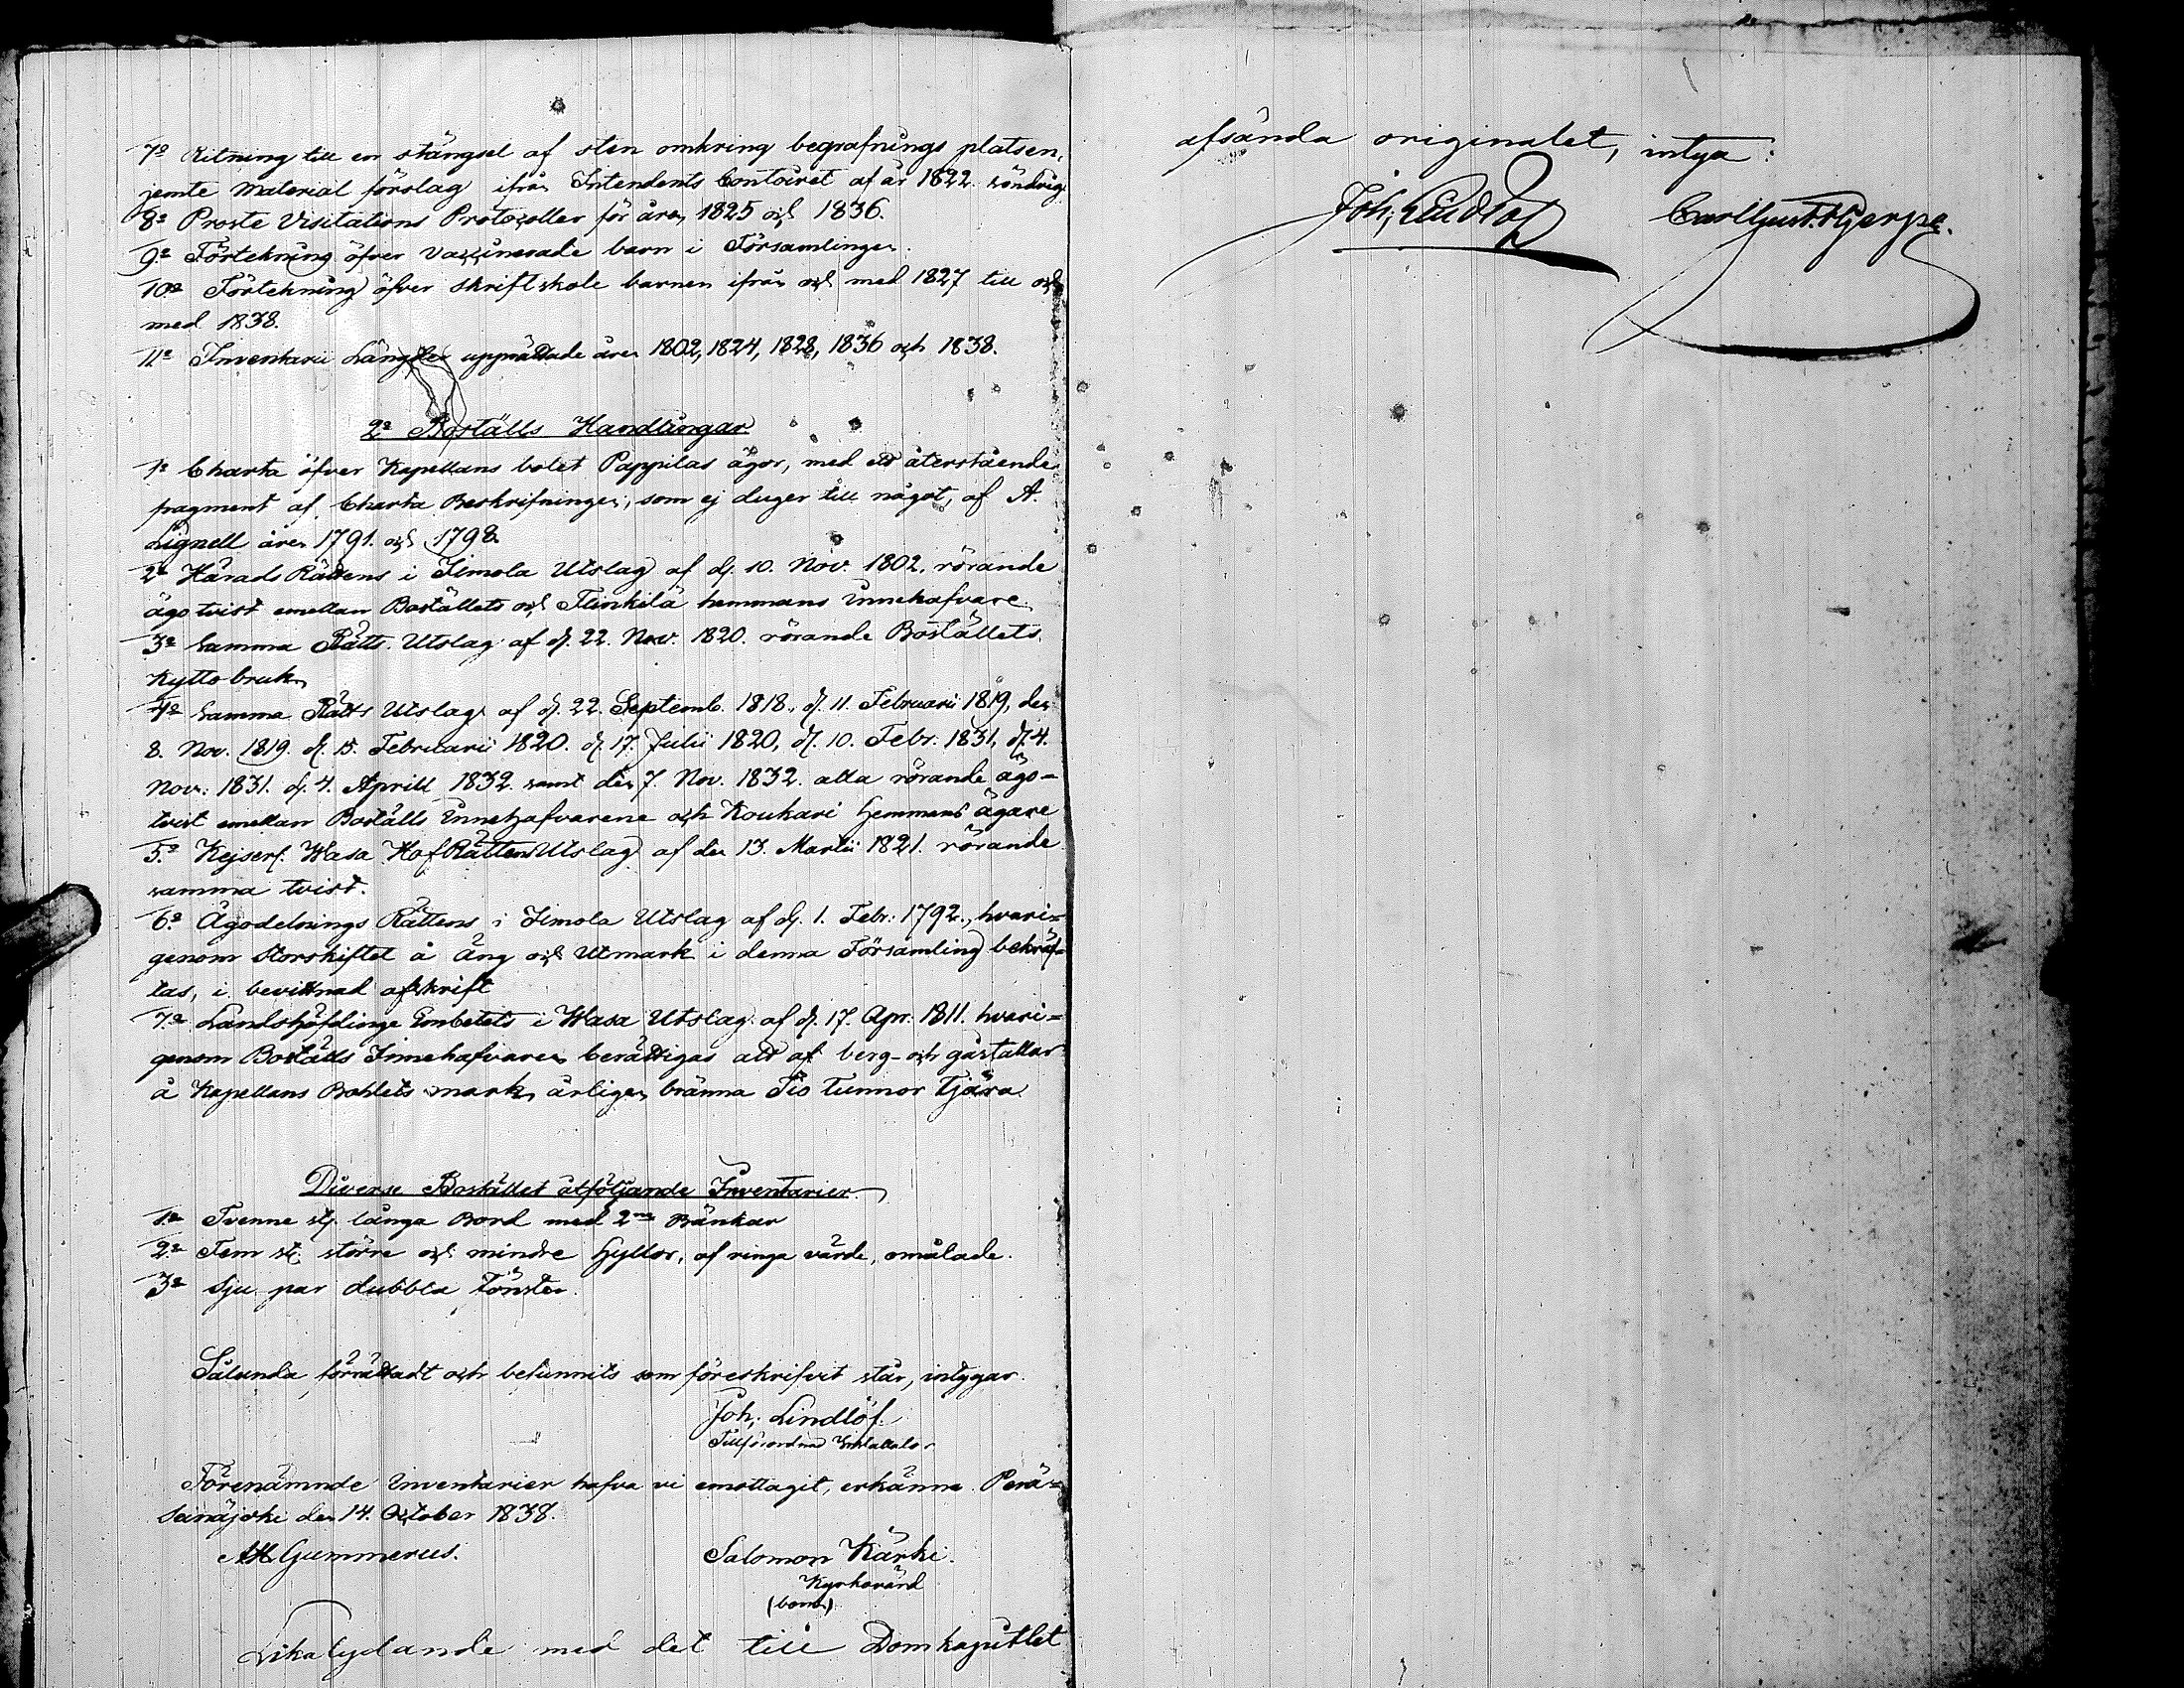 7o Ritning till en stängsel af sten omkring begrafnings platsen,
jemte material förslag ifrån Intendents Contoiret af år 1822. söndrig
8o Proste Visitations Protocoller för åren 1825 och 1836.
9o Förtekning öfver vaccinerade barn i Församlingen.
10o Förtekning öfver skriftskole barnen ifrån och med 1827 till och
med 1838.
11o Inventarii Längder upprättade åren 1802, 1824, 1828, 1836 och 1838.
2o Boställs Handlingar
1o Charta öfver Kapellans bolet Pappilas ägor, med ett återstående
fragment af Charta Beskrifningen, som ej duger till något, af A.
Lignell åren 1791. och 1798.
2o Härads Rättens i Ilmola Utslag af d. 10. Nov. 1802. rörande
ägo tvist emellan Boställets och Flinkilä hemmans innehafvare.
3o Samma Rätts Utslag af d. 22. Nov. 1820. rörande Boställets
Kyttobruk.
4o Samma Rätts Utslag af d. 22. Septemb. 1818, d. 11. Februarii 1819, den
8. Nov. 1819. d. 15. Februarii 1820. d. 17. Julii 1820, d. 10. Febr. 1831, d. 4.
Nov. 1831. d. 4. Aprill 1832. samt den 7. Nov. 1832. alla rörande ägo-
tvist emellan Boställs Innehafvarene och Koukari Hemmans ägare
5o Kejserl. Wasa HofRättens Utslag af den 13. Martii 1821. rörande
samma tvist.
6o Ägodelnings Rättens i Ilmola Utslag af d. 1. Febr. 1792., hvari-
genom Storskiftet å Äng och Utmark i denna Församling bekräf-
tas, i bevittnad afskrift
7o Landshöfdinge Embetets i Wasa Utslag af d. 17. Apr. 1811. hvari-
genom Boställs Innehafvaren berättigas att af berg- och gastallar
å Kapellans Bohlets mark, årligen bränna Tio Tunnor Tjära
Diverse Bostället åtföljande Inventarier
1o Tvenne st. långa Bord med 2ne Bänkar
2o Fem st. större och mindre Hyllor, af ringa värde, omålade.
3o Sju par dubbla fönster.
Sålunda förrättadt och befunnits som föreskrifvit står, intygar
Joh. Lindlöf.
Tillförordnad
Förenämnde Inventarier hafva vi emottagit, erkänna. Perä-
seinäjoki den 14. October 1838.
AH Gummerus. Salomon Kärki.
Kyrkovärd
(bom.)
Likalydande med det till Domkapitlet
afsända originalet, intyga:
Joh. Lindlöf Carl Gust. Hjerpe.